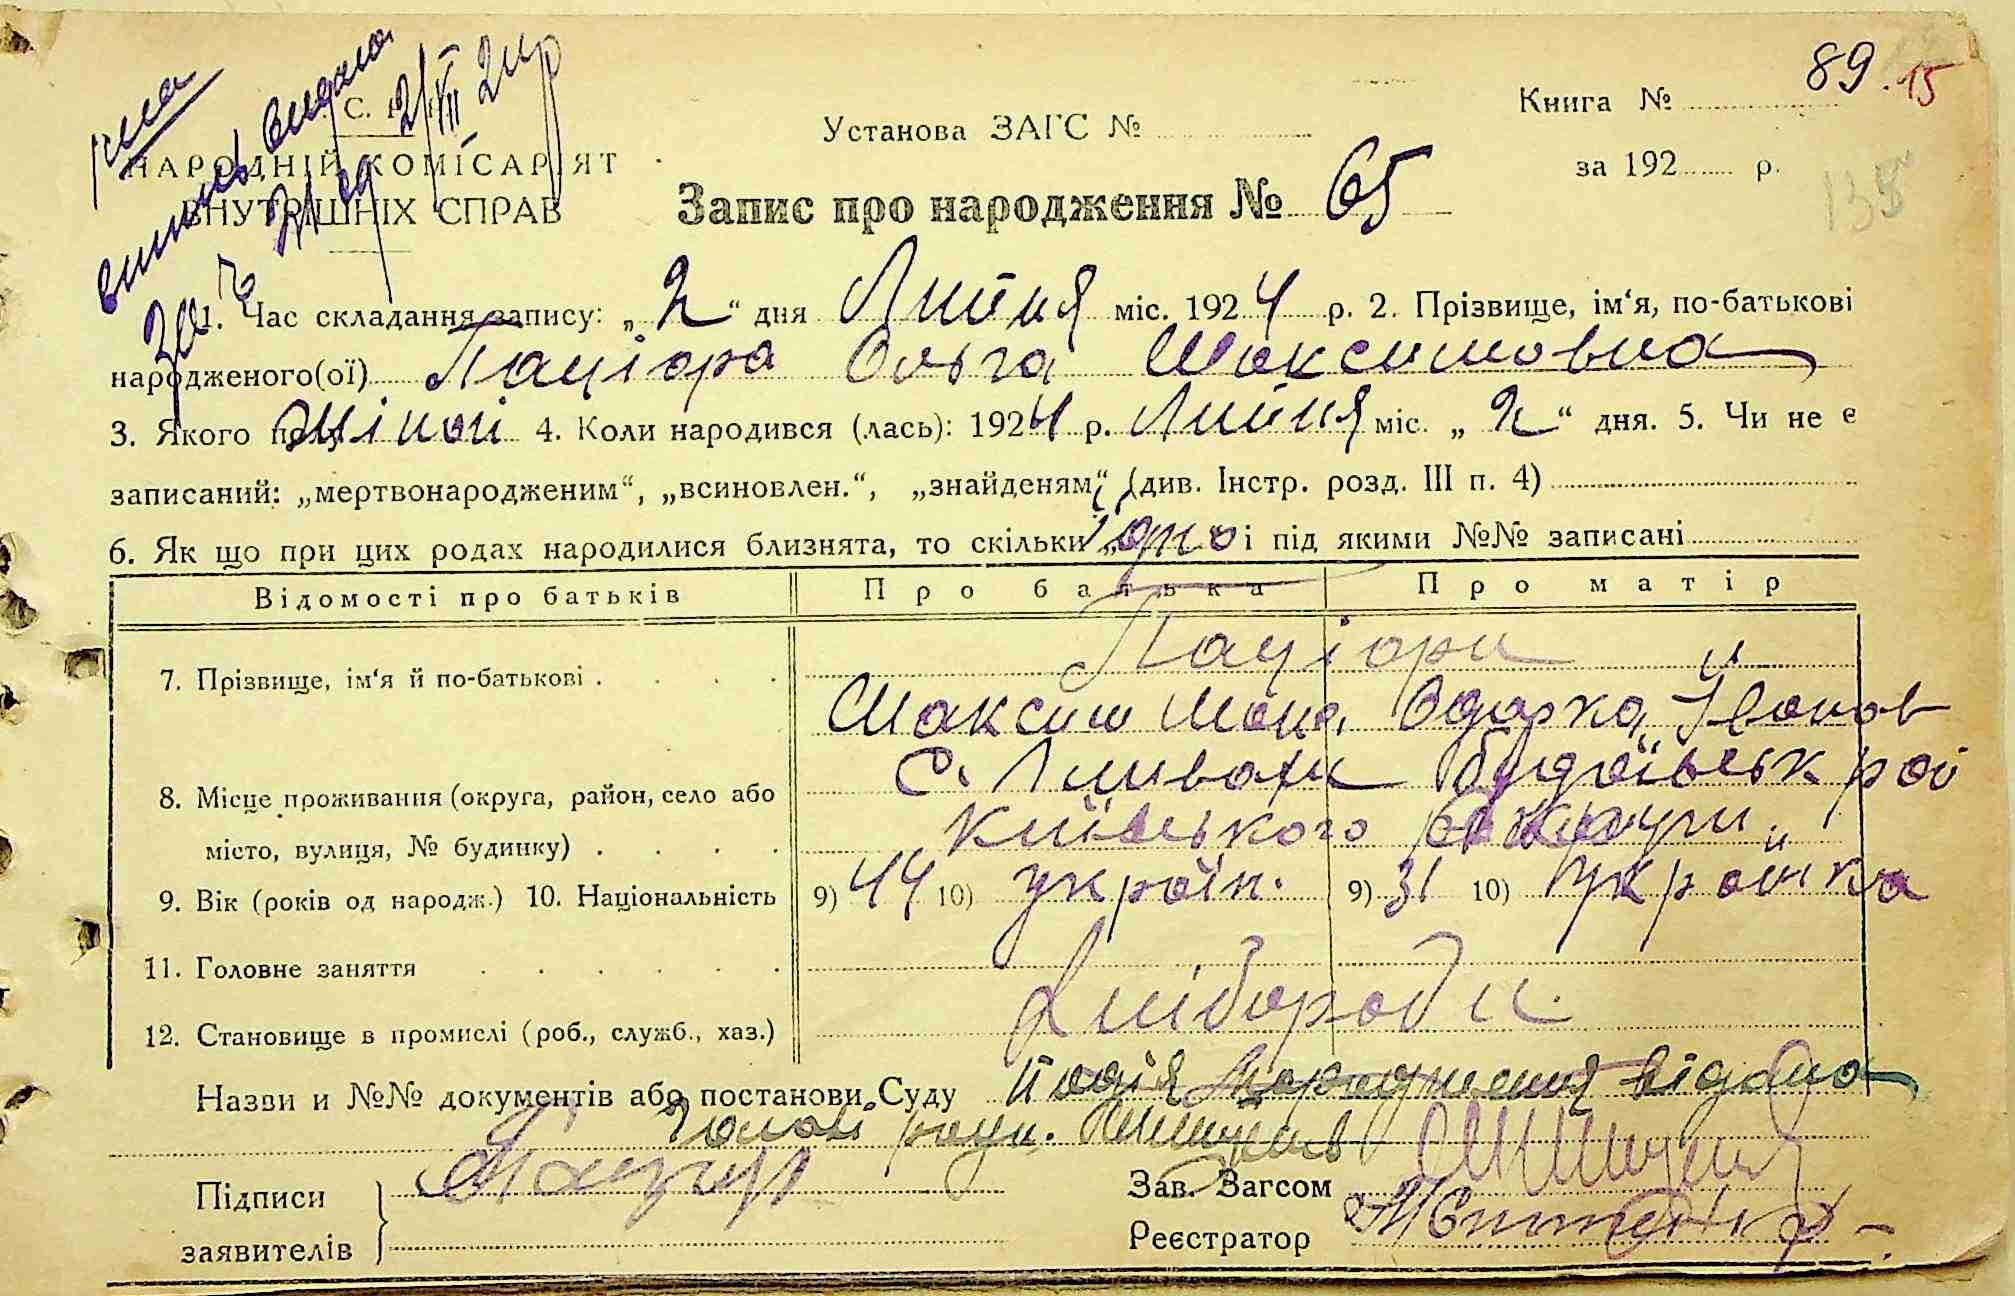 89. 15
Книга №
Установа ЗАГС №
випись видана
2/VII 24 р
НАРОДНІЙ КОМІСАРІЯТ
за 192 р.
135
ВНУТРІШНІХ СПРАВ
Запис про народження № 65
За ч.
1. Час складання запису: „2“ дня Липня міс. 1924 р. 2. Прізвище, ім‘я, по-батькові
народженого(ої) Паціора Ольга Максимовна
3. Якого полу жіночої 4. Коли народився (лась): 1924 р. Липня міс. „2“ дня. 5. Чи не є
записаний: „мертвонародженим“, „всиновлен.“, „знайденям“ (див. Інстр. розд. III п. 4)
6. Як що при цих родах народилися близнята, то скільки „одно“ і під якими №№ записані
Відомості про батьків Про батька Про матір
7. Прізвище, ім‘я й по-батькові Паціори
Максим Одарка Іванов
8. Місце проживання (округа, район, село або с. район
місто, вулиця, № будинку) Київського округи
9. Вік (років од народж.) 10. Національність 9) 44 10) україн. 9) 31 10) Українка
11. Головне заняття
12. Становище в промислі (роб., служб., хаз.) Хлібороби
Назви и №№ документів або постанови Суду Подія народження відома
Голові
Підписи
заявителів
Зав. Загсом
Реєстратор